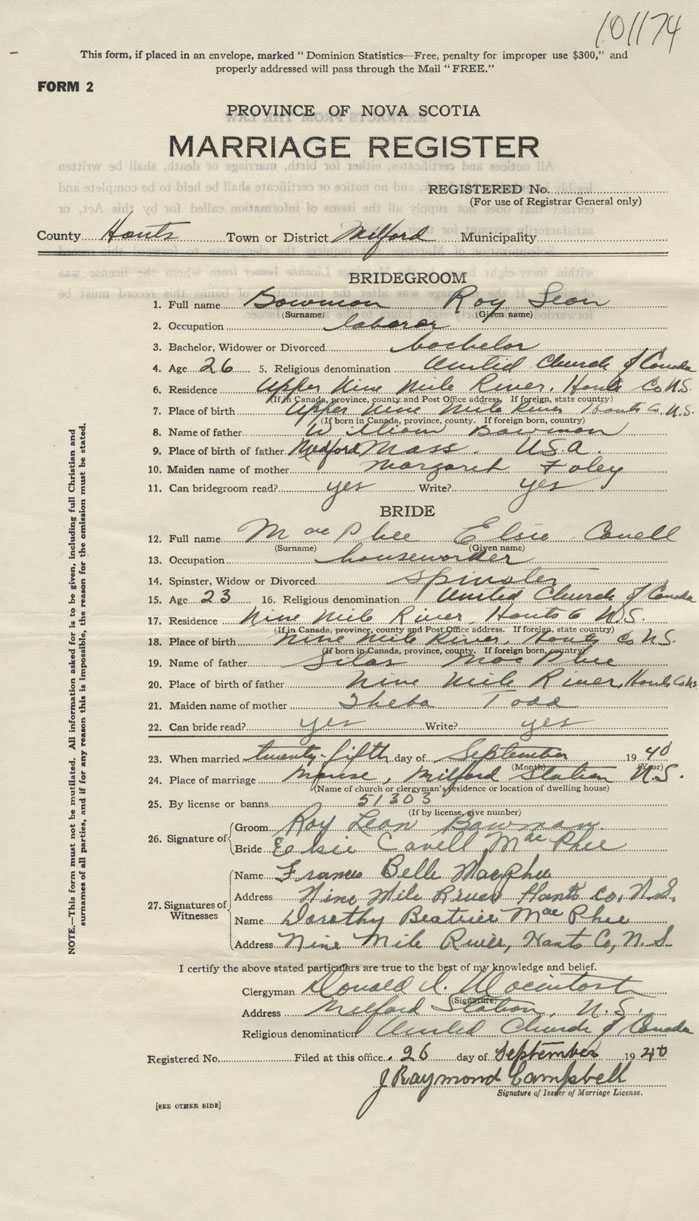 101174
This form, if placed in an envelope, marked "Dominion Statistics—Free, penalty for improper use $300," and
properly addressed will pass through the Mail "FREE."
FORM 2
PROVINCE OF NOVA SCOTIA
MARRIAGE REGISTER
REGISTERED No.
(For use of Registrar General only)
County Hants Town or District Milford Municipality
BRIDEGROOM
1. Full name Bowman Roy Leon
(Surname) (Given name)
2. Occupation laborer
3. Bachelor, Widower or Divorced bachelor
4. Age 26 5. Religious denomination United Church of Canada
6. Residence Upper Nine Mile River, Hants Co N.S.
(If in Canada, province, county and Post Office address. If foreign, state country)
7. Place of birth Upper Nine Mile River Hants Co. N.S.
(If born in Canada, province, county. If foreign born, country)
8. Name of father William Bowman
9. Place of birth of father Medford Mass. U.S.A
10. Maiden name of mother Margaret Foley
11. Can bridegroom read? yes Write? yes
BRIDE
12. Full name MacPhee Elsie Cavell
(Surname) (Given name)
13. Occupation houseworker
14. Spinster, Widow or Divorced spinster
15. Age 23 16. Religious denomination United Church of Canada
17. Residence Nine Mile River Hants Co N.S.
(If in Canada, province, county and Post Office address. If foreign, state country)
18. Place of birth Nine Mile River Hants Co N.S.
(If born in Canada, province, county. If foreign born, country)
19. Name of father Silas MacPhee
20. Place of birth of father Nine Mile River, Hants Co NS
21. Maiden name of mother Theba Todd
22. Can bride read? yes Write? yes
23. When married twenty-fifth day of September 1940
(Month) (Year)
24. Place of marriage Manse, Milford Station N.S.
(Name of church or clergyman's residence or location of dwelling house)
25. By license or banns 51303
(If by license, give number)
26. Signature of Groom Roy Leon Bowman
Bride Elsie Cavell MacPhee
27. Signatures of Witnesses
Name Frances Belle MacPhee
Address Nine Mile River Hants Co, N.S.
Name Dorothy Beatrice MacPhee
Address Nine Mile River, Hants Co, N.S.
I certify the above stated particulars are true to the best of my knowledge and belief.
Clergyman Donald A. Macintosh
(Signature)
Address Milford Station, N.S.
Religious denomination United Church of Canada
Registered No. Filed at this office 26 day of September 1940
J Raymond Campbell
Signature of Issuer of Marriage License.
[SEE OTHER SIDE]
NOTE.—This form must not be mutilated. All information asked for is to be given, including full Christian and
surnames of all parties, and if for any reason this is impossible, the reason for the omission must be stated.